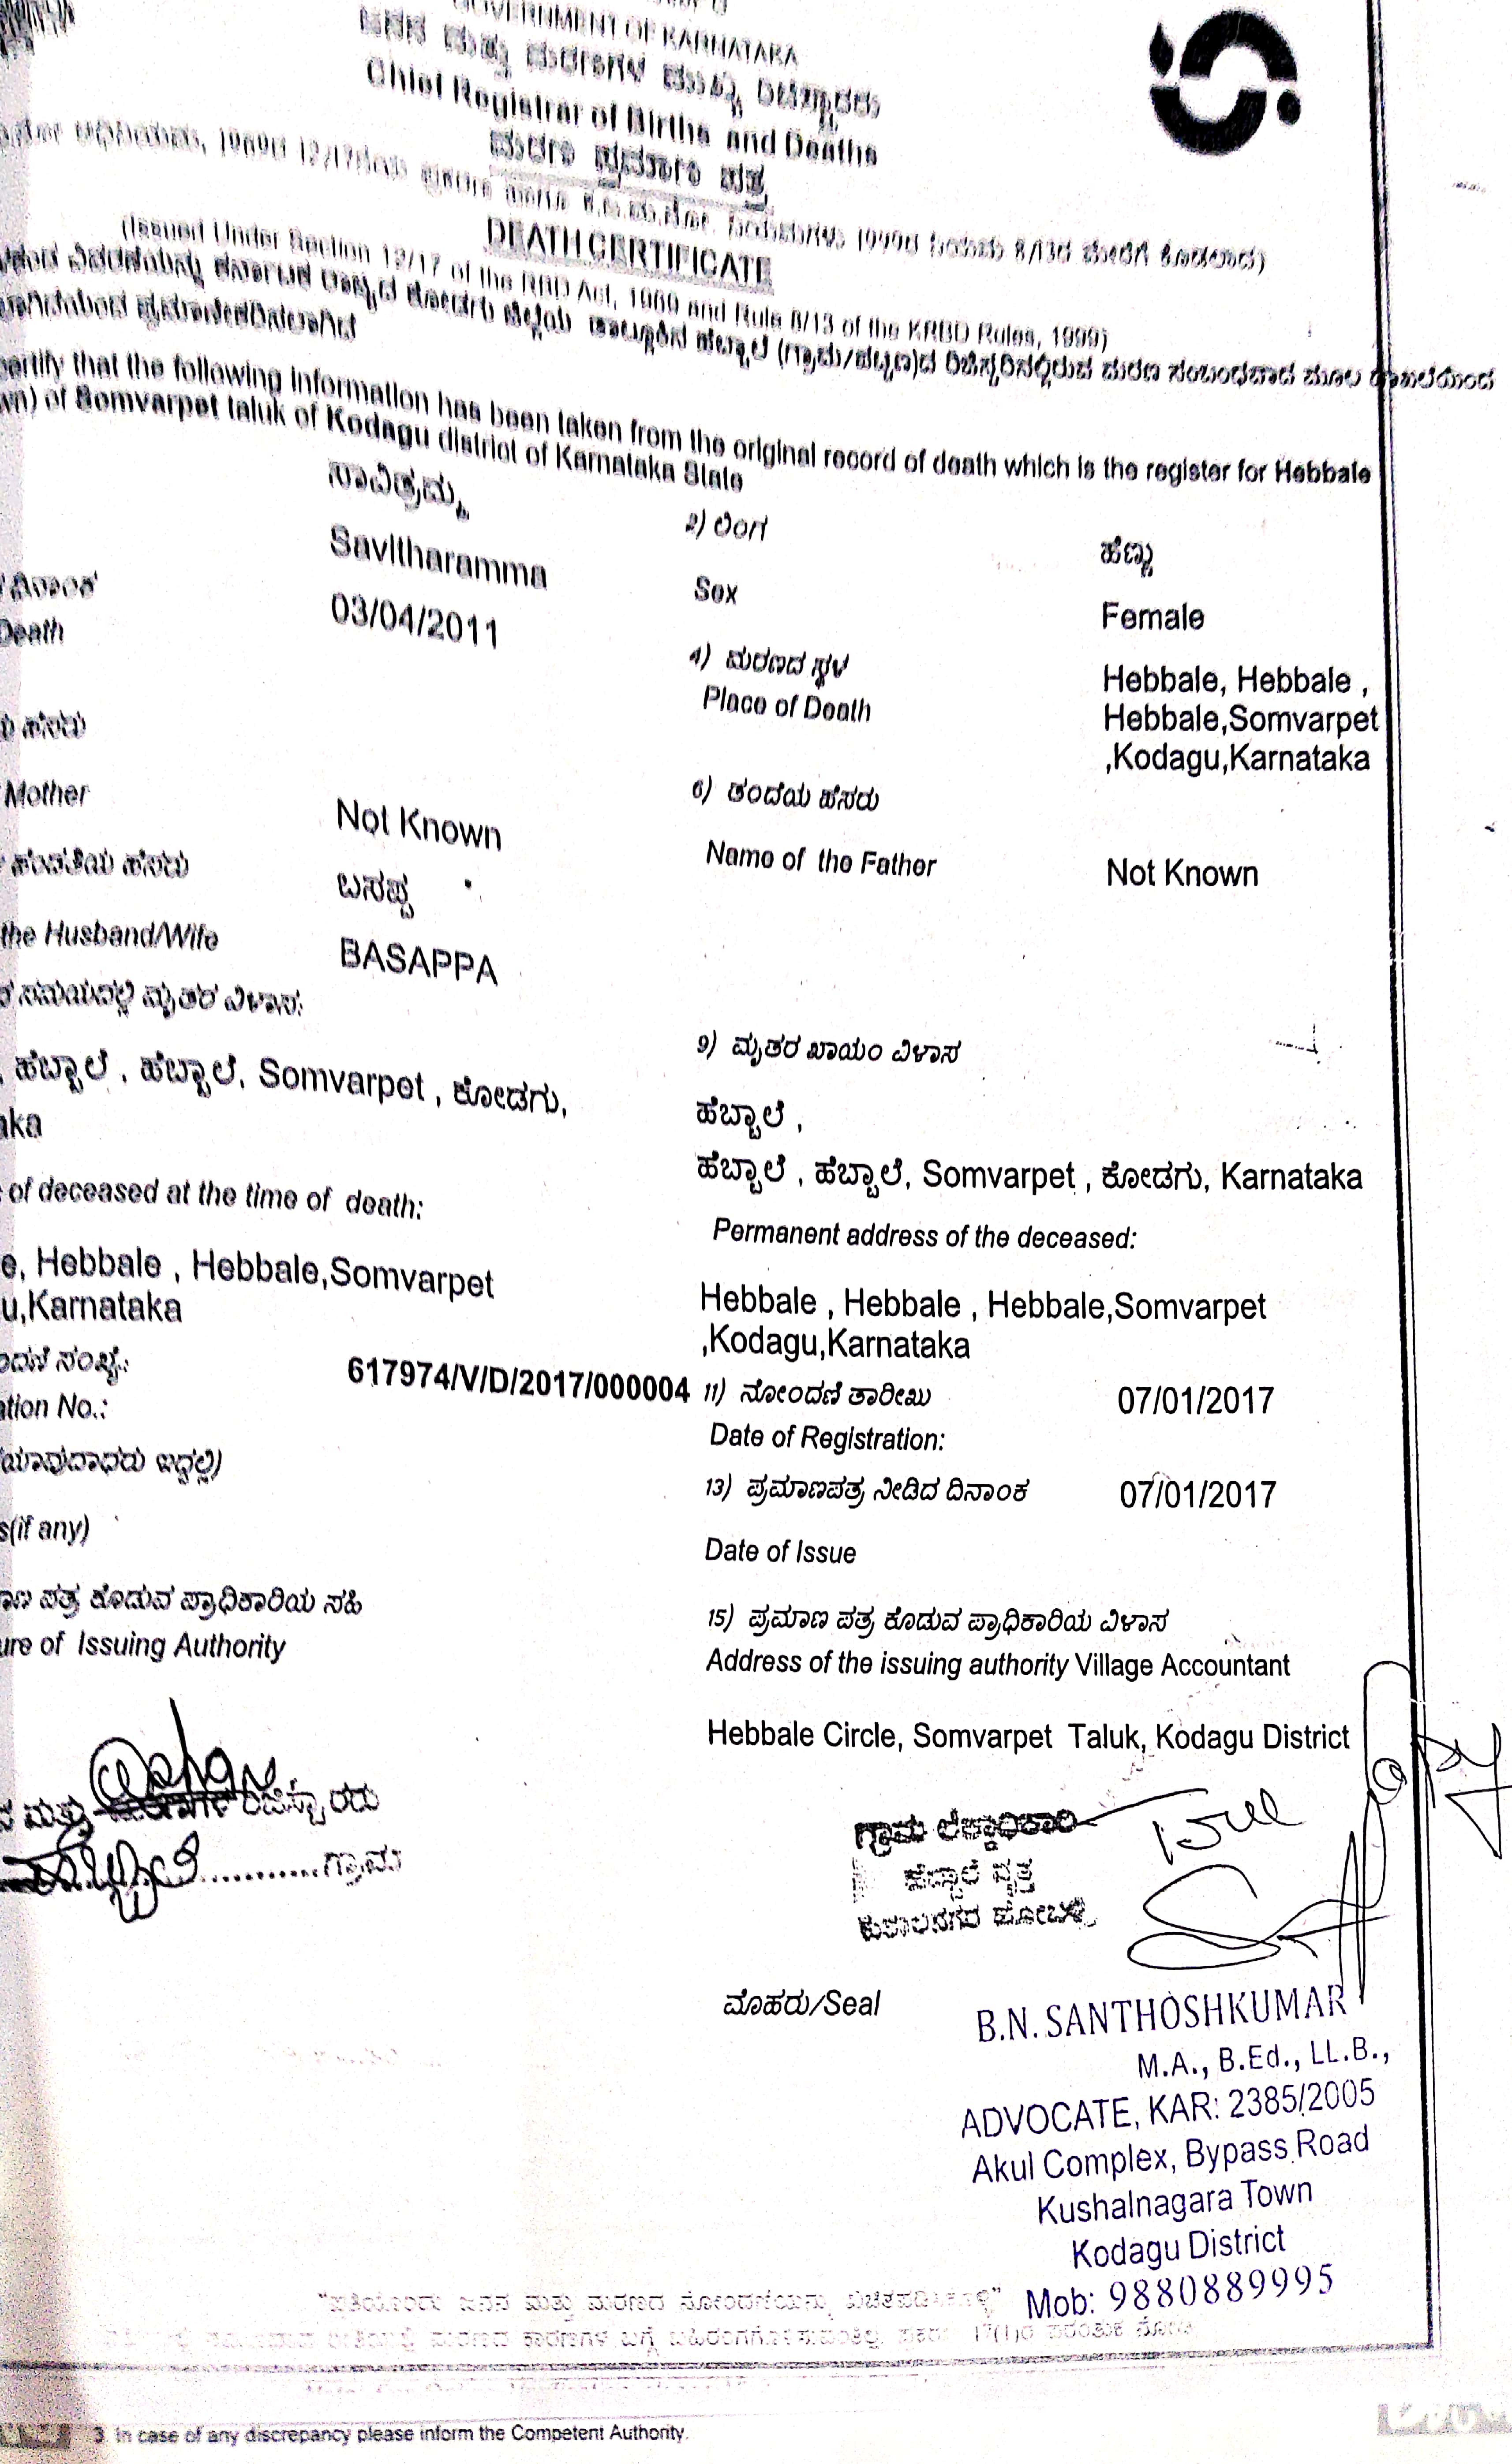 GOVERNMENT OF KARNATAKA
ಜನನ ಮತ್ತು ಮರಣಗಳ ಮುಖ್ಯ ರಿಜಿಸ್ಟ್ರಾರರು
Chief Registrar of Births and Deaths
ಮರಣ ಪ್ರಮಾಣ ಪತ್ರ
DEATH CERTIFICATE
(Issued Under Section 12/17 of the RBD Act, 1969 and Rule 8/13 of the KRBD Rules, 1999)
ertify that the following information has been taken from the original record of death which is the register for Hebbale
wn) of Somvarpet taluk of Kodagu district of Karnataka State
ಸಾವಿತ್ರಮ್ಮ
2) ಲಿಂಗ
ಹೆಣ್ಣು
Savitharamma
Sex
Female
ದಿನಾಂಕ
Death
03/04/2011
4) ಮರಣದ ಸ್ಥಳ
Place of Death
Hebbale, Hebbale ,
Hebbale,Somvarpet
,Kodagu,Karnataka
ಹೆಸರು
6) ತಂದೆಯ ಹೆಸರು
Mother
Not Known
Name of the Father
Not Known
ಹೆಂಡತಿಯ ಹೆಸರು
ಬಸಪ್ಪ
the Husband/Wife
BASAPPA
ಸಮಯದಲ್ಲಿ ಮೃತರ ವಿಳಾಸ:
9) ಮೃತರ ಖಾಯಂ ವಿಳಾಸ
, ಹೆಬ್ಬಾಲೆ , ಹೆಬ್ಬಾಲೆ, Somvarpet , ಕೋಡಗು,
aka
ಹೆಬ್ಬಾಲೆ ,
ಹೆಬ್ಬಾಲೆ , ಹೆಬ್ಬಾಲೆ, Somvarpet , ಕೋಡಗು, Karnataka
of deceased at the time of death:
Permanent address of the deceased:
e, Hebbale , Hebbale,Somvarpet
u,Karnataka
Hebbale , Hebbale , Hebbale,Somvarpet
,Kodagu,Karnataka
ಂದಣಿ ಸಂಖ್ಯೆ:
617974/V/D/2017/000004
11) ನೋಂದಣಿ ತಾರೀಖು
07/01/2017
ation No.:
Date of Registration:
ಯಾವುದಾಧರು ಇದ್ದಲ್ಲಿ)
13) ಪ್ರಮಾಣಪತ್ರ ನೀಡಿದ ದಿನಾಂಕ
07/01/2017
s(if any)
Date of Issue
ಾಣ ಪತ್ರ ಕೊಡುವ ಪ್ರಾಧಿಕಾರಿಯ ಸಹಿ
15) ಪ್ರಮಾಣ ಪತ್ರ ಕೊಡುವ ಪ್ರಾಧಿಕಾರಿಯ ವಿಳಾಸ
ure of Issuing Authority
Address of the issuing authority Village Accountant
Hebbale Circle, Somvarpet Taluk, Kodagu District
ನ ಮತ್ತು ಮರಣಗಳ ರಿಜಿಸ್ಟ್ರಾರರು
...........ಗ್ರಾಮ
ಗ್ರಾಮ ಲೆಕ್ಕಾಧಿಕಾರಿ
ಹೆಬ್ಬಾಲೆ ವೃತ್ತ
ಕುಶಾಲನಗರ ಹೋಬಳಿ
True
ಮೊಹರು/Seal
B.N. SANTHOSHKUMAR
M.A., B.Ed., LL.B.,
ADVOCATE, KAR: 2385/2005
Akul Complex, Bypass Road
Kushalnagara Town
Kodagu District
Mob: 9880889995
3. In case of any discrepancy please inform the Competent Authority.